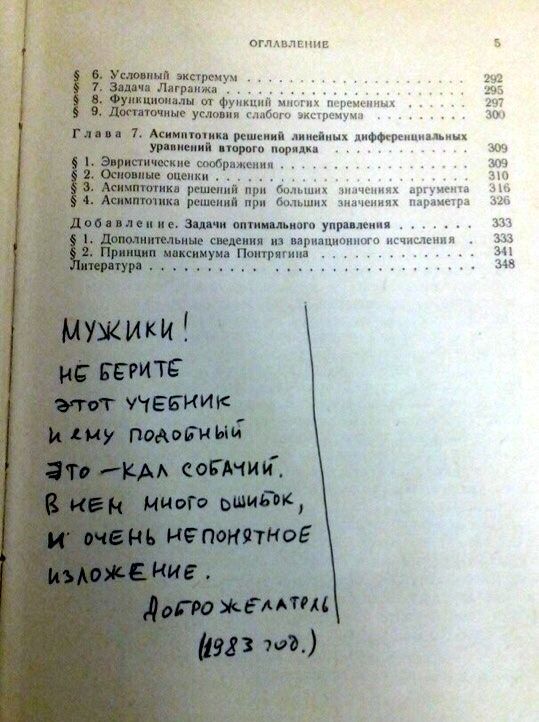 ОГЛАВЛЕНИЕ 5
§ 6. Условный экстремум . . . . . . . . . . . . . . . . 292
§ 7. Задача Лагранжа . . . . . . . . . . . . . . . . . 295
§ 8. Функционалы от функций многих переменных . . . . . . 297
§ 9. Достаточные условия слабого экстремума . . . . . . . 300
Глава 7. Асимптотика решений линейных дифференциальных
уравнений второго порядка . . . . . . . . . . . 309
§ 1. Эвристические соображения . . . . . . . . . . . . . 309
§ 2. Основные оценки . . . . . . . . . . . . . . . . . 310
§ 3. Асимптотика решений при больших значениях аргумента 316
§ 4. Асимптотика решений при больших значениях параметра 326
Добавление. Задачи оптимального управления . . . . . . . 333
§ 1. Дополнительные сведения из вариационного исчисления . 333
§ 2. Принцип максимума Понтрягина . . . . . . . . . . . 341
Литература . . . . . . . . . . . . . . . . . . . . . 348
МУЖИКИ!
НЕ БЕРИТЕ
ЭТОТ УЧЕБНИК
И ЕМУ ПОДОБНЫЙ
ЭТО – КАЛ СОБАЧИЙ.
В НЕМ МНОГО ОШИБОК,
И ОЧЕНЬ НЕПОНЯТНОЕ
ИЗЛОЖЕНИЕ.
ДОБРОЖЕЛАТЕЛЬ
(1983 год.)